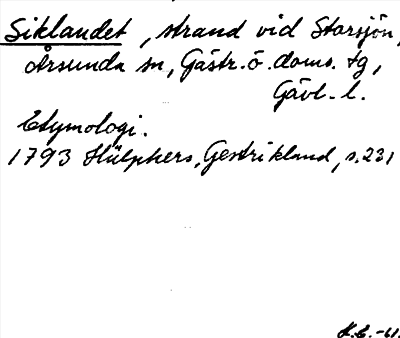 Siklandet, strand vid Storsjön,
Årsunda sn, Gästr. ö. doms. tg,
Gävl. l.
Etymologi.
1793 Hülphers, Gestrikland, s. 231
H.C. -61.